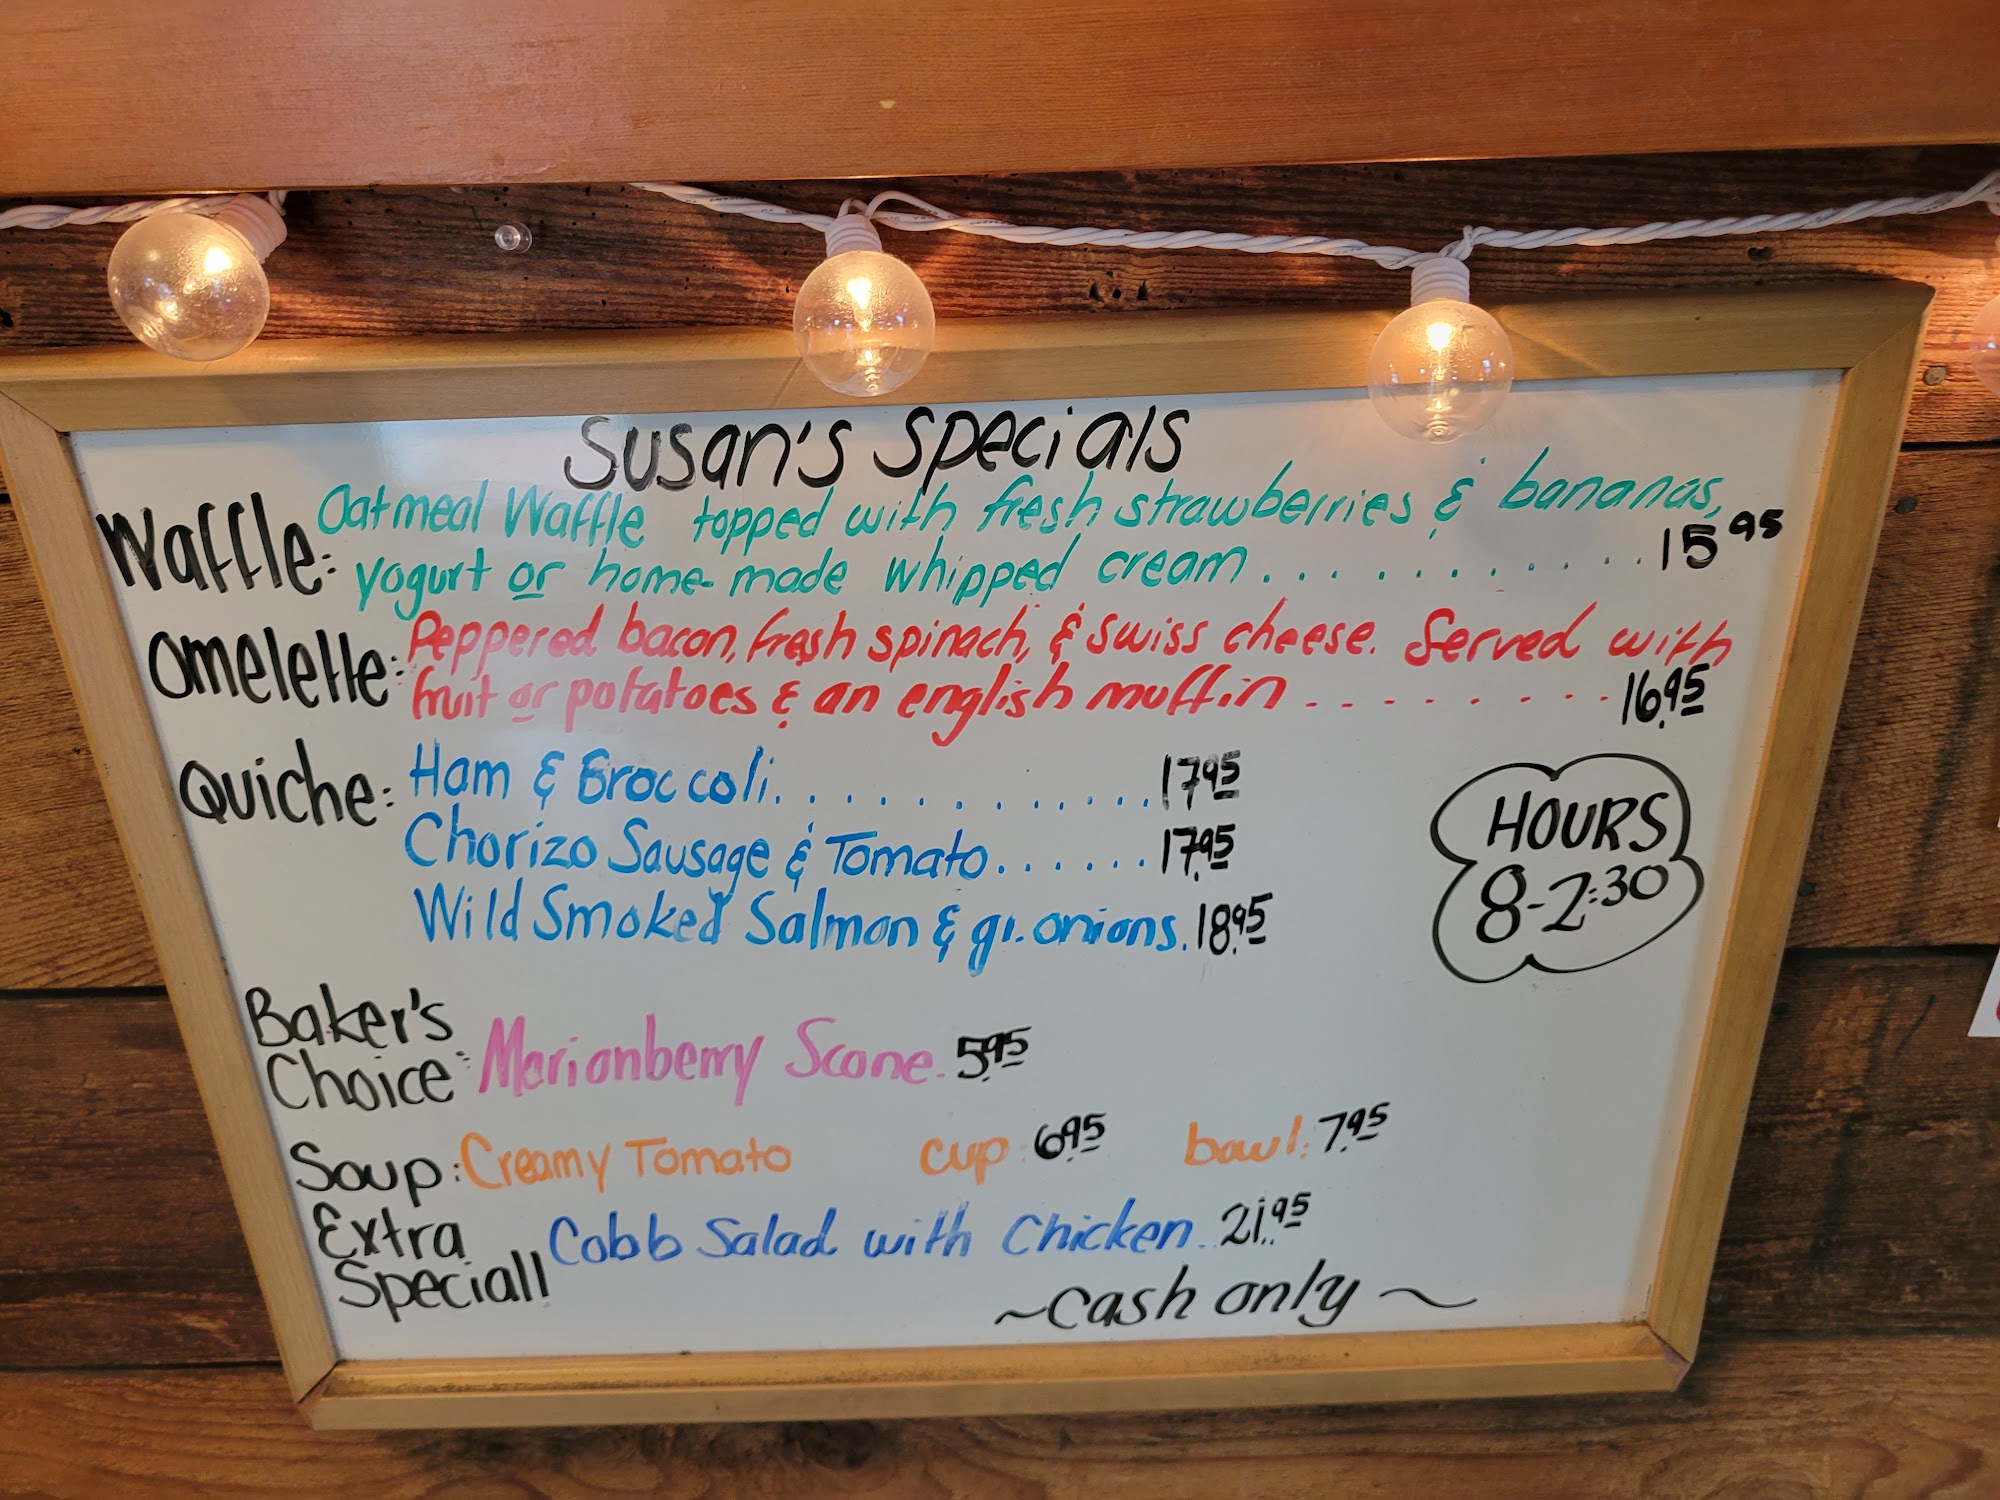 Susan's Specials
Waffle: Oatmeal Waffle topped with fresh strawberries & bananas,
yogurt or home-made whipped cream . . . . . . . . . . . . 15.95
Omelette: Peppered bacon, fresh spinach, & swiss cheese. Served with
fruit or potatoes & an english muffin . . . . . . . . . 16.95
Quiche: Ham & Broccoli . . . . . . . . . . . . . . 17.95
Chorizo Sausage & Tomato . . . . . . 17.95
Wild Smoked Salmon & gr. onions. 18.95
HOURS
8-2:30
Baker's
Choice: Marionberry Scone. 5.95
Soup: Creamy Tomato cup: 6.95 bowl: 7.95
Extra
Special! Cobb Salad with Chicken. 21.95
~Cash only~